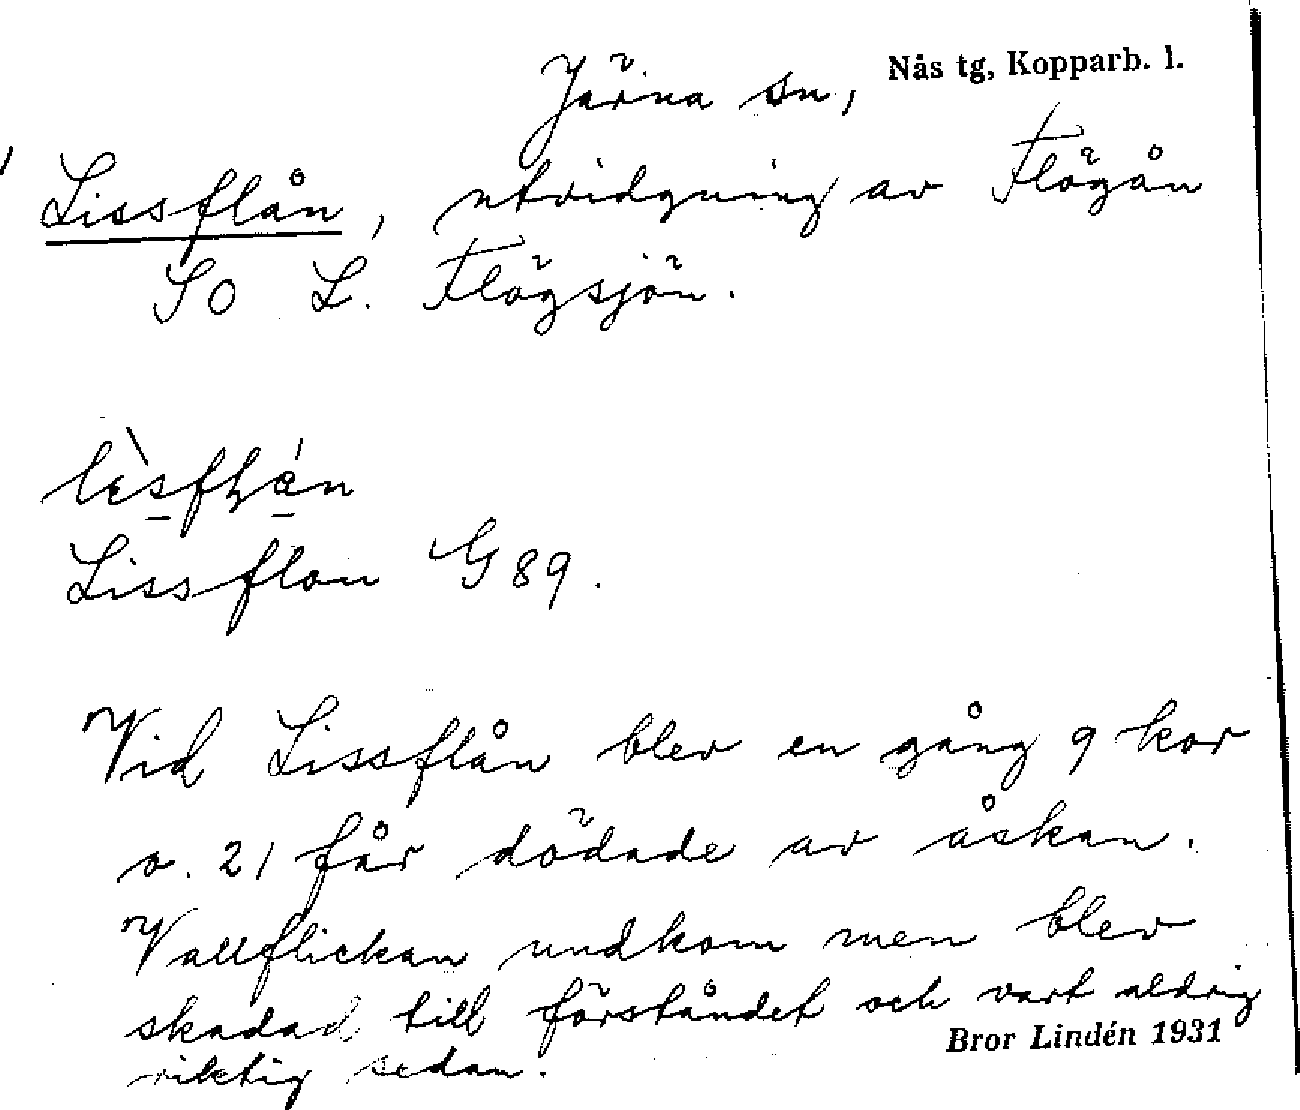 Järna sn, Nås tg, Kopparb. l.
Lissflån, utvidgning av Flögån
SO L. Flögsjön.
Lissflon G 89.
Vid Lissflån blev en gång 9 kor
o. 21 får dödade av åskan.
Vallflickan undkom men blev
skadad till förståndet och vart aldrig
riktig sedan.
Bror Lindén 1931